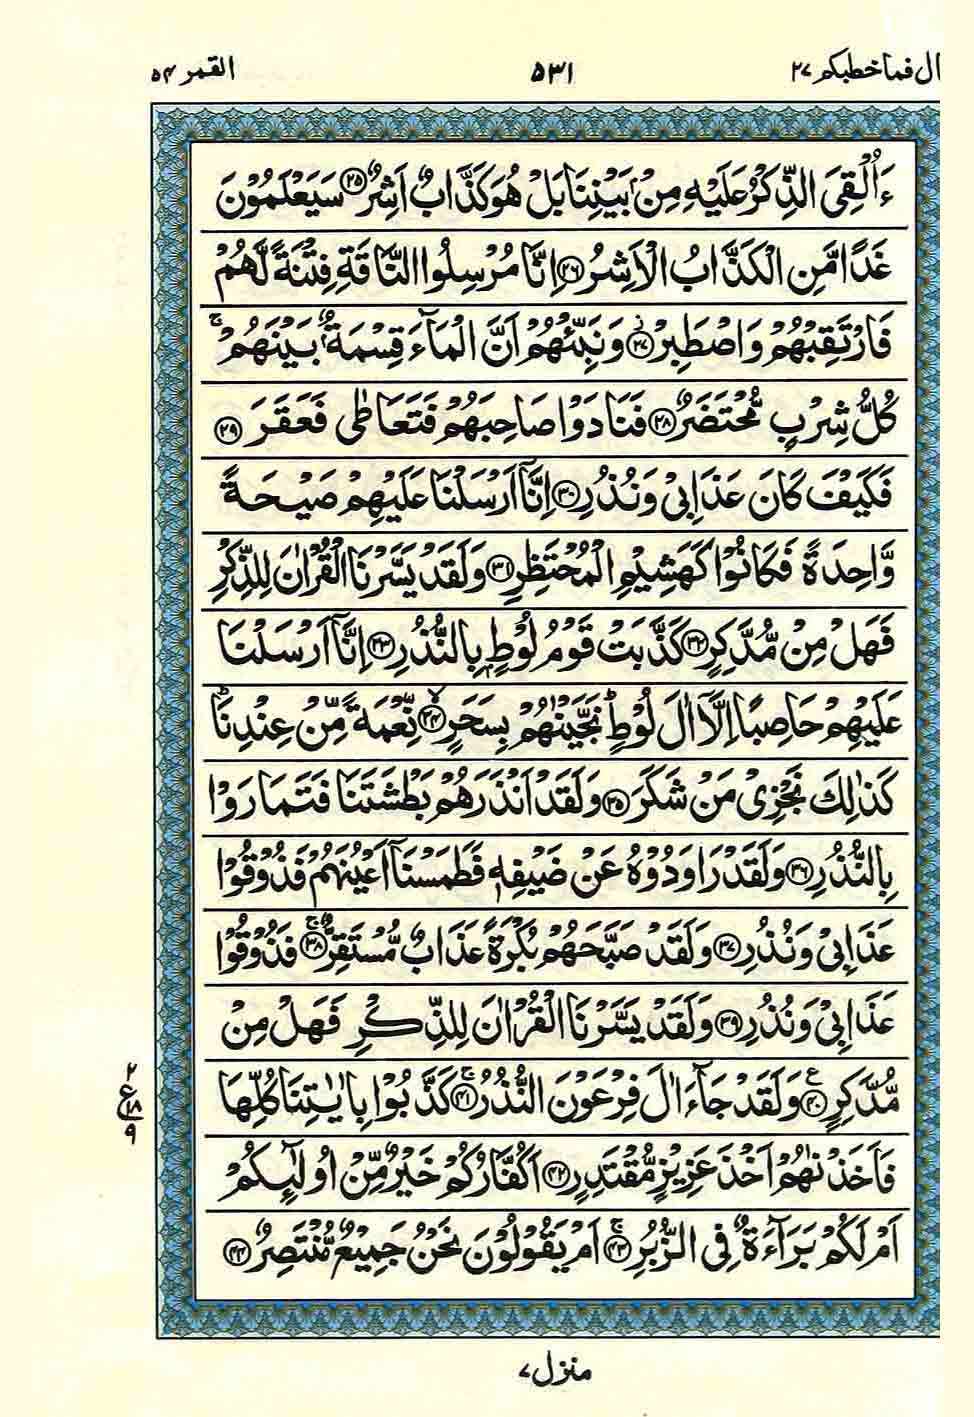 ال فماخطبكم ٢٧ ٥٣١ القمر ٥٤
ءَاُلْقِىَ الذِّكْرُ عَلَيْهِ مِنْۢ بَيْنِنَا بَلْ هُوَ كَذَّابٌ اَشِرٌ ۝٢٥ سَيَعْلَمُوْنَ
غَدًا مَّنِ الْكَذَّابُ الْاَشِرُ ۝٢٦ اِنَّا مُرْسِلُوا النَّاقَةِ فِتْنَةً لَّهُمْ
فَارْتَقِبْهُمْ وَاصْطَبِرْ ۝٢٧ وَنَبِّئْهُمْ اَنَّ الْمَآءَ قِسْمَةٌۢ بَيْنَهُمْ ۚ
كُلُّ شِرْبٍ مُّحْتَضَرٌ ۝٢٨ فَنَادَوْا صَاحِبَهُمْ فَتَعَاطٰى فَعَقَرَ ۝٢٩
فَكَيْفَ كَانَ عَذَابِىْ وَنُذُرِ ۝٣٠ اِنَّآ اَرْسَلْنَا عَلَيْهِمْ صَيْحَةً
وَّاحِدَةً فَكَانُوْا كَهَشِيْمِ الْمُحْتَظِرِ ۝٣١ وَلَقَدْ يَسَّرْنَا الْقُرْاٰنَ لِلذِّكْرِ
فَهَلْ مِنْ مُّدَّكِرٍ ۝٣٢ كَذَّبَتْ قَوْمُ لُوْطٍۭ بِالنُّذُرِ ۝٣٣ اِنَّآ اَرْسَلْنَا
عَلَيْهِمْ حَاصِبًا اِلَّآ اٰلَ لُوْطٍ ؕ نَجَّيْنٰهُمْ بِسَحَرٍ ۙ۝٣٤ نِّعْمَةً مِّنْ عِنْدِنَا ؕ
كَذٰلِكَ نَجْزِىْ مَنْ شَكَرَ ۝٣٥ وَلَقَدْ اَنْذَرَهُمْ بَطْشَتَنَا فَتَمَارَوْا
بِالنُّذُرِ ۝٣٦ وَلَقَدْ رَاوَدُوْهُ عَنْ ضَيْفِهٖ فَطَمَسْنَآ اَعْيُنَهُمْ فَذُوْقُوْا
عَذَابِىْ وَنُذُرِ ۝٣٧ وَلَقَدْ صَبَّحَهُمْ بُكْرَةً عَذَابٌ مُّسْتَقِرٌّ ۚ۝٣٨ فَذُوْقُوْا
عَذَابِىْ وَنُذُرِ ۝٣٩ وَلَقَدْ يَسَّرْنَا الْقُرْاٰنَ لِلذِّكْرِ فَهَلْ مِنْ
مُّدَّكِرٍ ۝٤٠ ع وَلَقَدْ جَآءَ اٰلَ فِرْعَوْنَ النُّذُرُ ۚ۝٤١ كَذَّبُوْا بِاٰيٰتِنَا كُلِّهَا
٢ ع ١٨ ٩
فَاَخَذْنٰهُمْ اَخْذَ عَزِيْزٍ مُّقْتَدِرٍ ۝٤٢ اَكُفَّارُكُمْ خَيْرٌ مِّنْ اُولٰٓئِكُمْ
اَمْ لَكُمْ بَرَآءَةٌ فِى الزُّبُرِ ۚ۝٤٣ اَمْ يَقُوْلُوْنَ نَحْنُ جَمِيْعٌ مُّنْتَصِرٌ ۝٤٤
منزل ٧